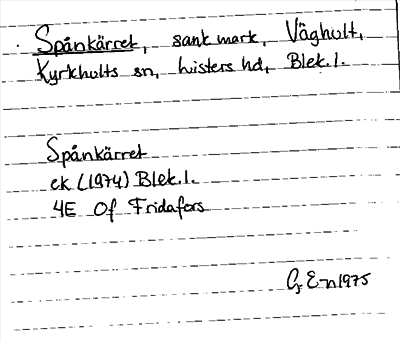 Spånkärret, sank mark, Våghult,
Kyrkhults sn, Listers hd, Blek. l.
Spånkärret
ek (1974) Blek. l.
4E 0f Fridafors
G E-n 1975